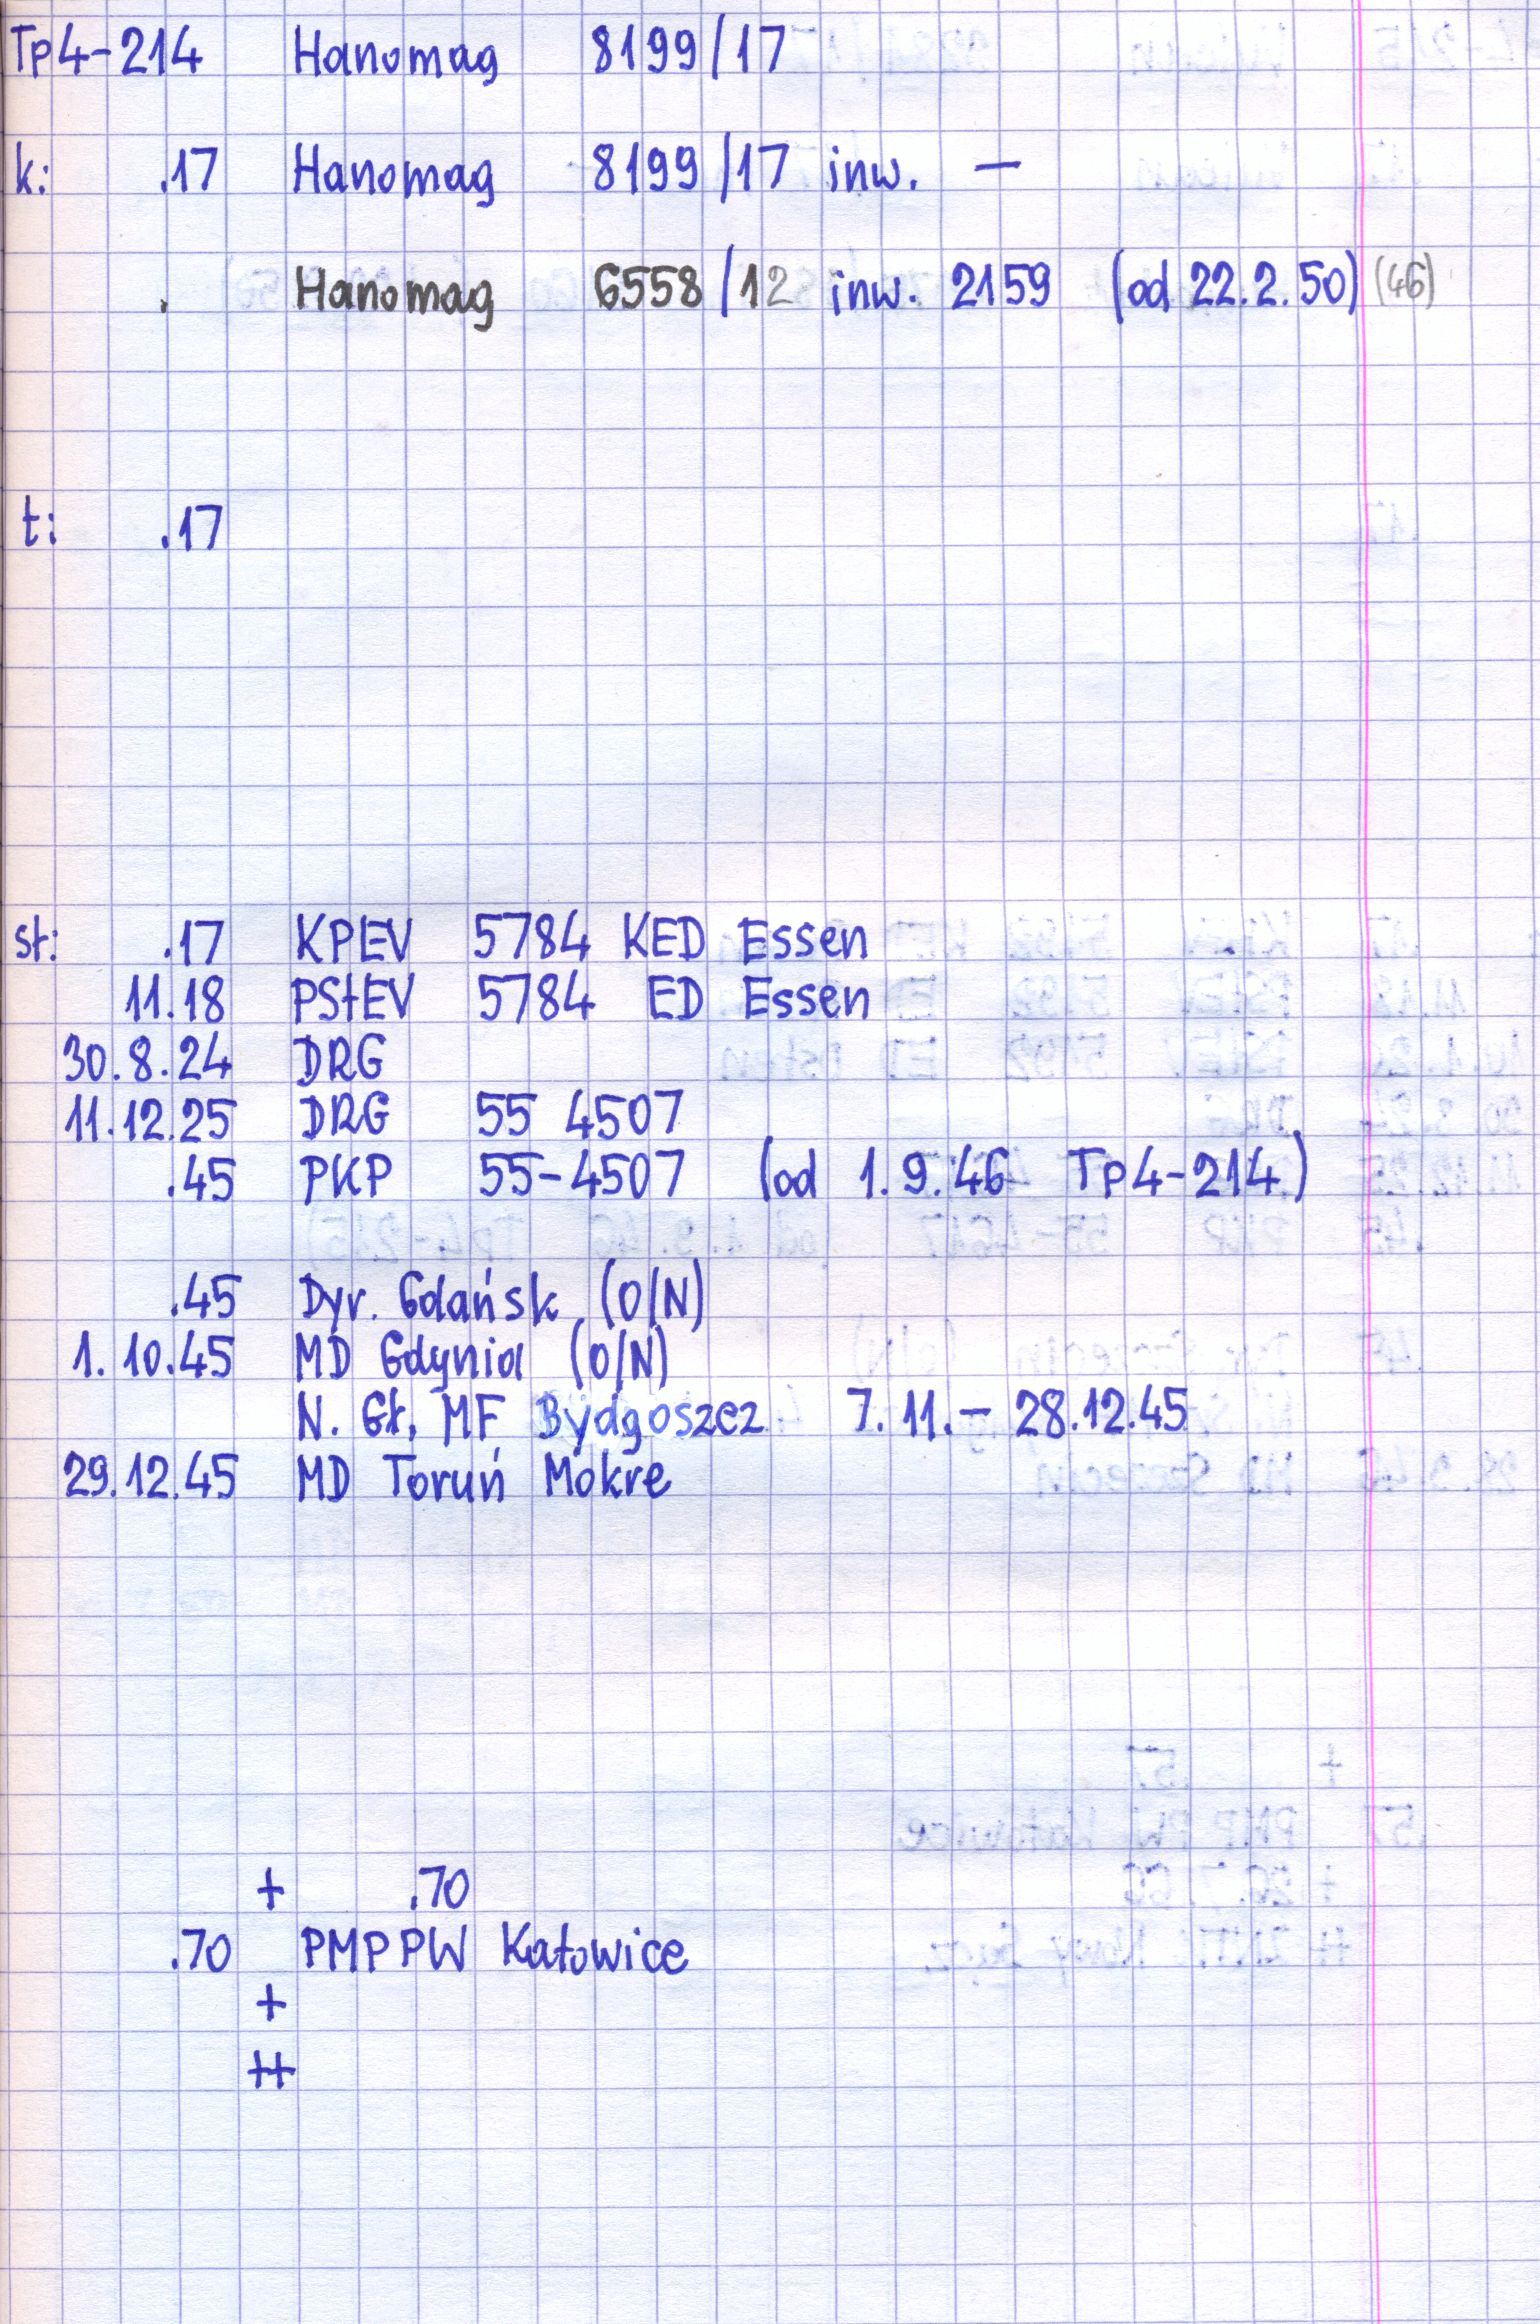 Tp4-214 Hanomag 8199/17
k: .17 Hanomag 8199/17 inw. —
. Hanomag 6558/12 inw. 2159 (od 22.2.50) (46)
t: .17
st: .17 KPEV 5784 KED Essen
11.18 PStEV 5784 ED Essen
30.8.24 DRG
11.12.25 DRG 55 4507
.45 PKP 55-4507 (od 1.9.46 Tp4-214)
.45 Dyr. Gdańsk (O/N)
1.10.45 MD Gdynia (O/N)
N. Gł. MF Bydgoszcz 7.11.- 28.12.45
29.12.45 MD Toruń Mokre
+ .70
.70 PMP PW Katowice
+
++